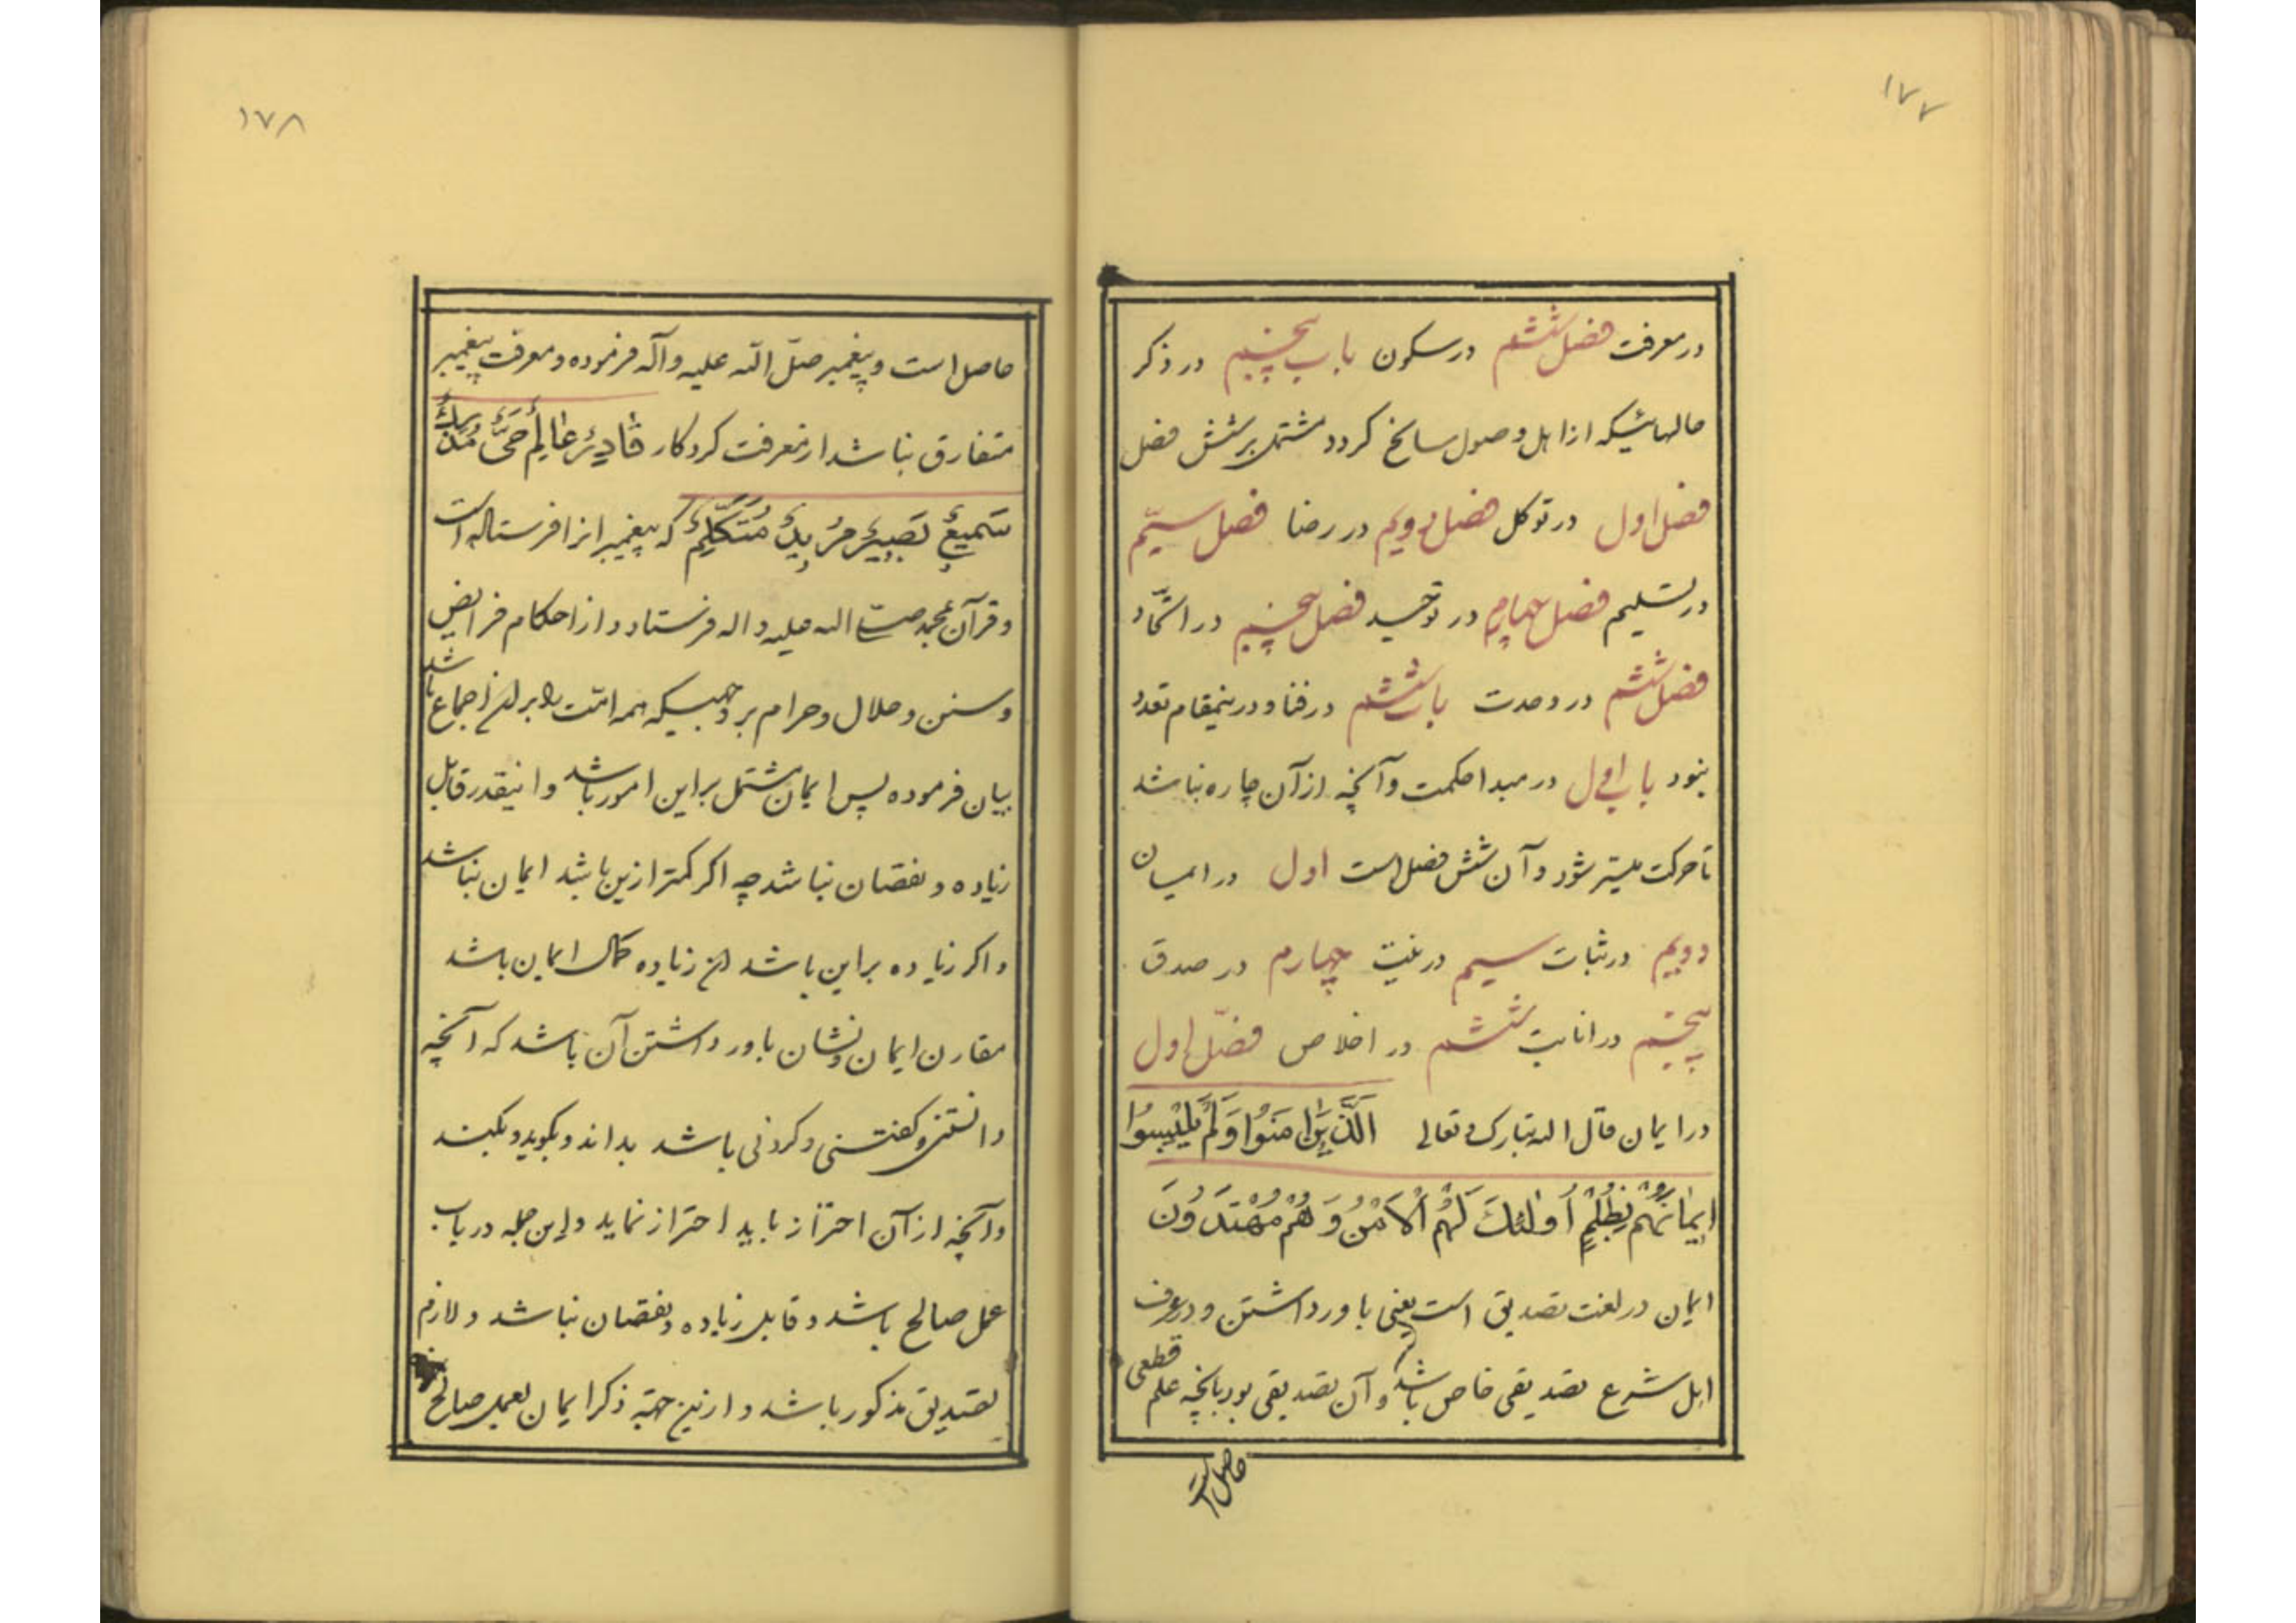 ۱۷۷
در معرفت فصل ششم در سکون باب پنجم در ذکر
حالهائیکه از اهل وصول سانح کردد مشتمل بر شش فصل
فصل اول در توکل فصل دویم در رضا فصل سیّم
در تسلیم فصل چهارم در توحید فصل پنجم در اتّحاد
فصل ششم در وحدت باب ششم در فنا و درینمقام تعدد
نبود باب اول در مبدا حکمت و آنچه از آن چاره نباشد
تا حرکت میسّر شود و آن شش فصل است اول در ایمان
دویم در ثبات سیم در نیت چهارم در صدق
پنجم در انابت ششم در اخلاص فصل اول
در ایمان قال الله تبارک و تعالی الَّذینَ اٰمَنُوا وَلَمْ یَلْبِسُوا
اِیمٰانَهُمْ بِظُلْمٍ اُولٰئِكَ لَهُمُ الْاَمْنُ وَهُمْ مُهْتَدُونَ
ایمان در لغت تصدیق است یعنی باور داشتن و در عرف
اهل شرع تصدیقی خاص باشد و آن تصدیقی بود بآنچه علم قطعی
حاصل است
۱۷۸
حاصل است و پیغمبر صلّ الله علیه و آله فرموده و معرفت پیغمبر
متفارق نباشد از معرفت کردکار قٰادِرٌ عٰالِمٌ حَیٌّ مُدْرِكٌ
سَمیعٌ بَصیرٌ مُریدٌ مُتَکَلِّمٌ که پیغمبرانرا فرستاده است
و قرآن بمحمد صلی الله علیه و اله فرستاد و از احکام فرایض
و سنن و حلال و حرام بر وجهیکه همه امّت را بر آن اجماع باشد
بیان فرموده پس ایمان مشتمل بر این امور باشد و اینقدر قابل
زیاده و نقصان نباشد چه اکر کمتر ازین باشد ایمان نباشد
و اکر زیاده بر این باشد آن زیاده کمال ایمان باشد
مقارن ایمان و نشان باور داشتن آن باشد که آنچه
دانستنی و کفتنی و کردنی باشد بداند و بکوید و بکند
و آنچه از آن احتراز باید احتراز نماید و این جمله در باب
عمل صالح باشد و قابل زیاده و نقصان نباشد و لازم
تصدیق مذکور باشد و ازین جهة ذکر ایمان بعمل صالح